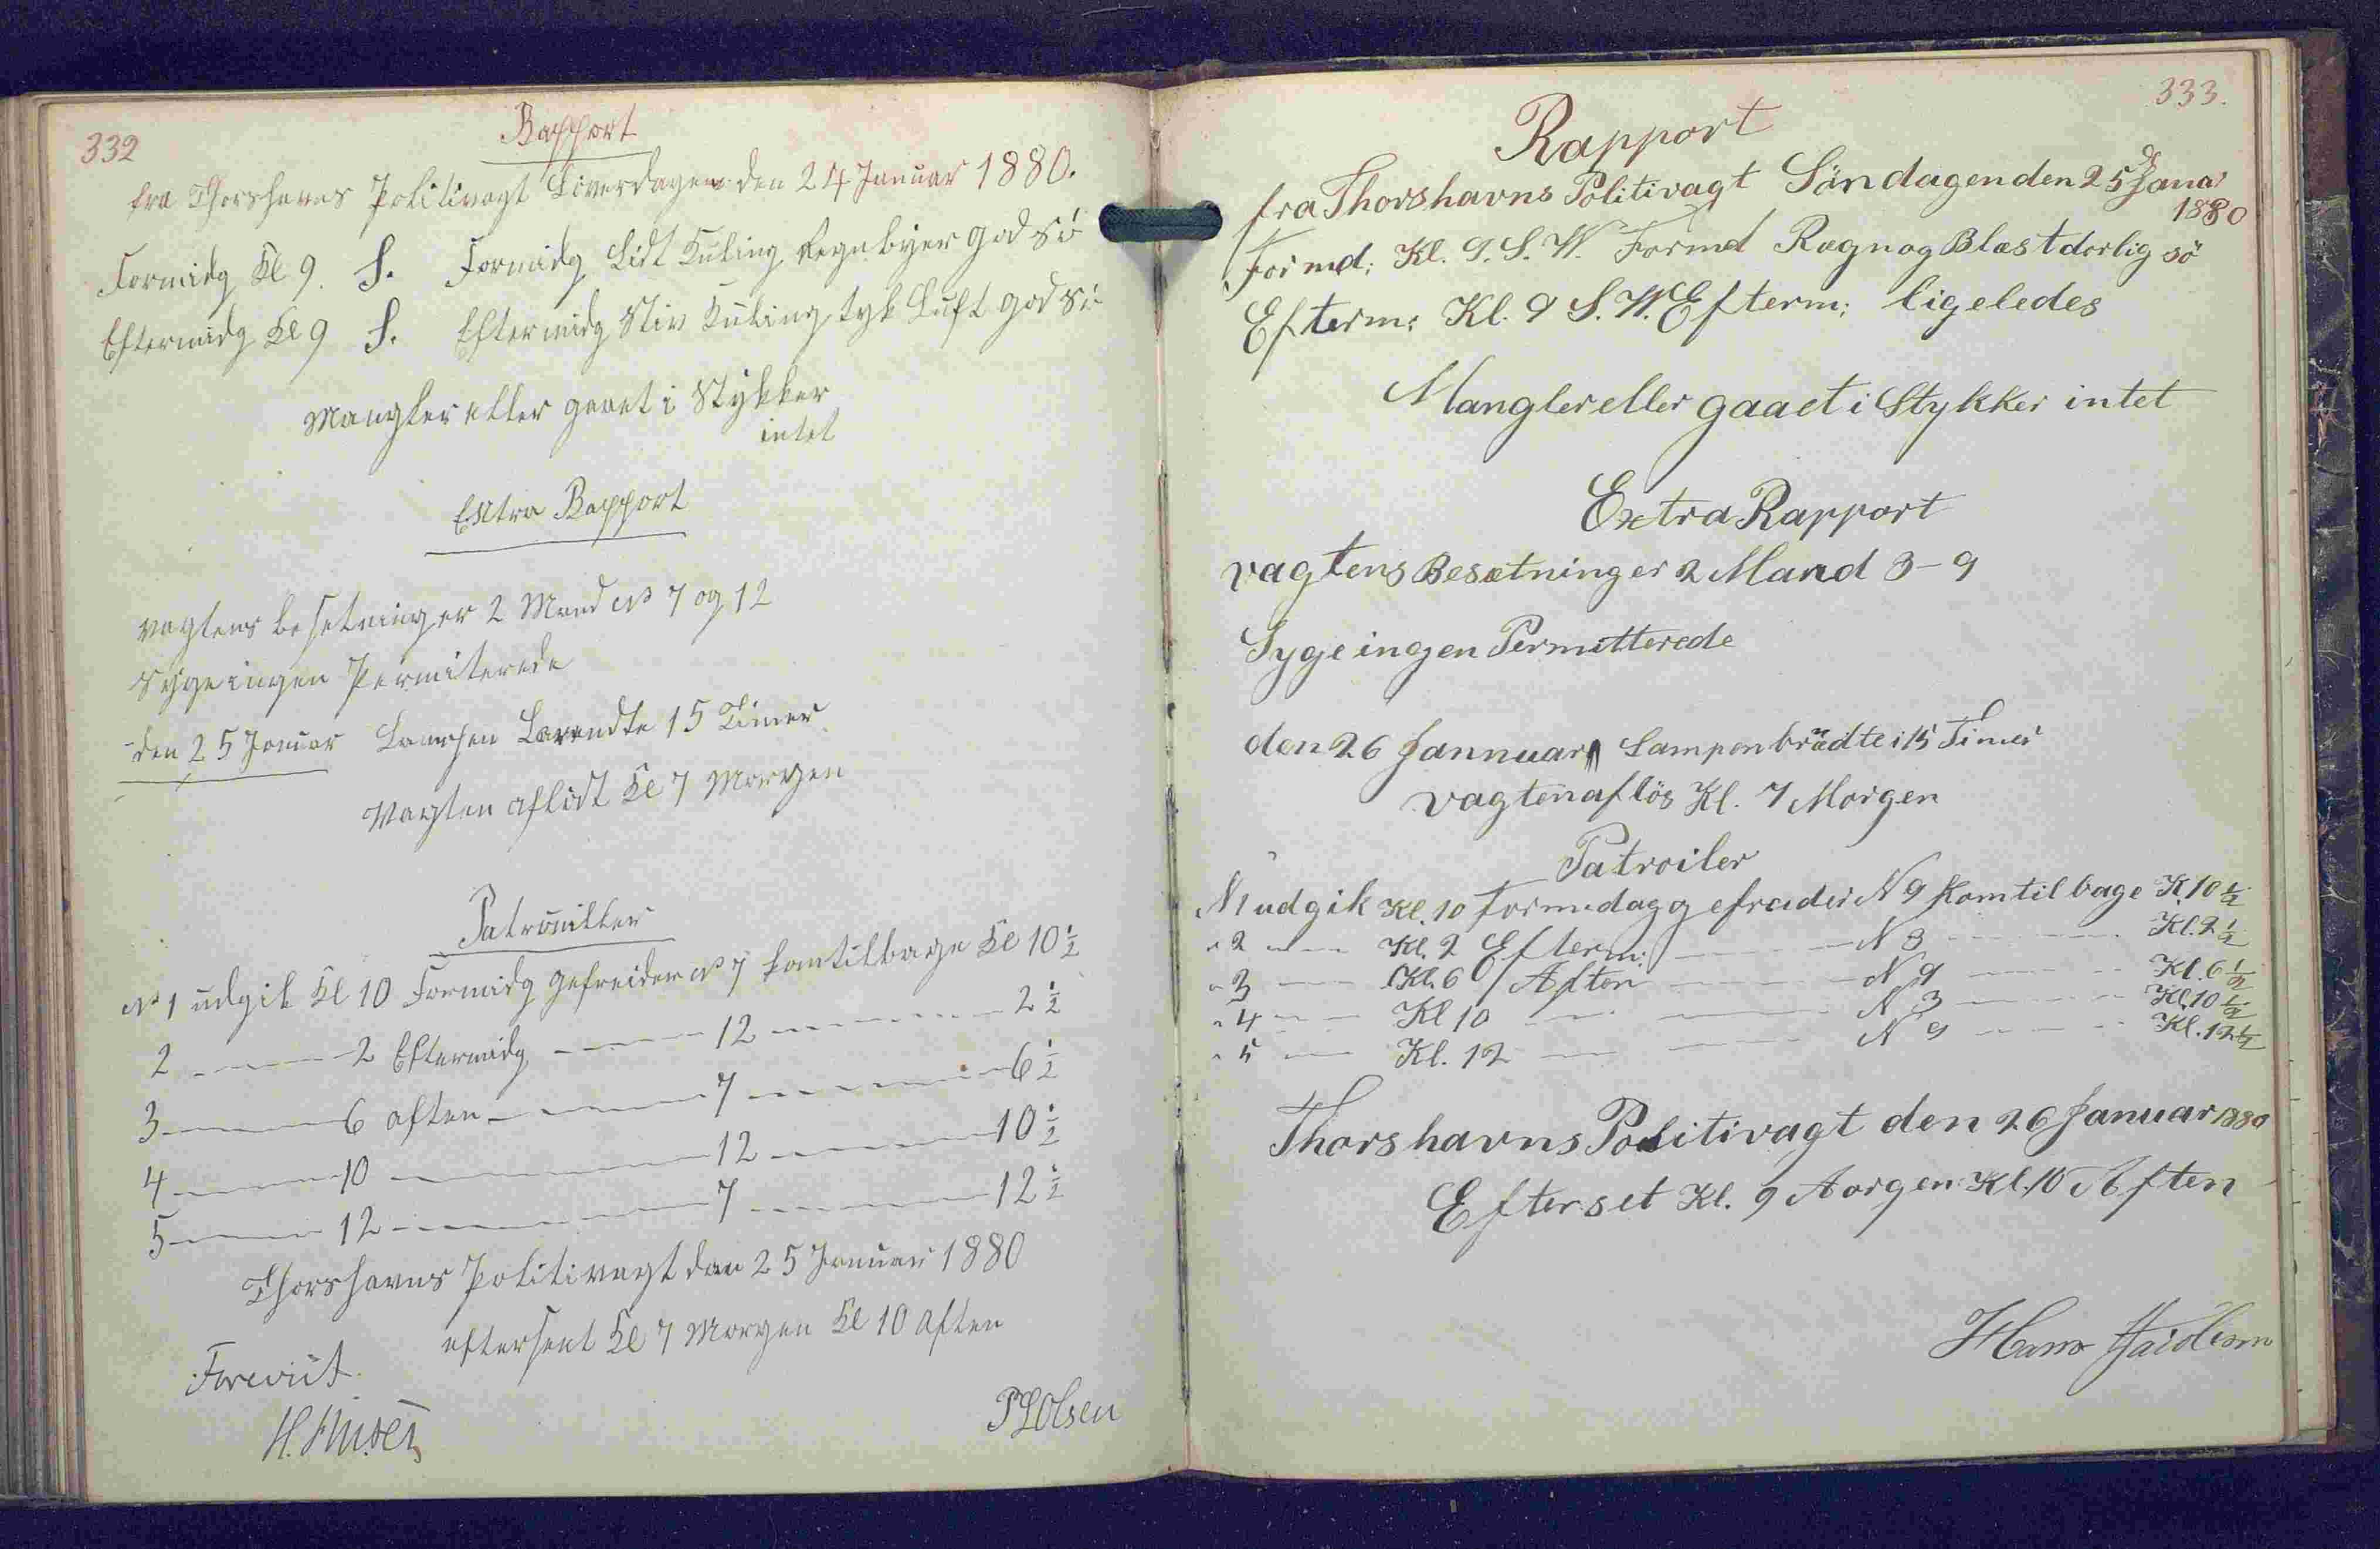 332
Rapport
fra Thorshavns Politivagt Löverdagen den 24 Januar 1880.
Formidg Kl 9. S. Formidg Lidt Kuling Regnbyer god Sö
Eftermidg Kl 9 S. Eftermidg Stiv Kuling tyk Luft god Sö
Mangler eller gaaet i Stykker
intet
Extra Rapport
vagtens besetning er 2 Mand No 7 og 12
Syge ingen Permiterede
den 25 Januar Lampen Brendte 15 Timer
Vagten aflöst Kl 7 Morgen
Patrouiller
No 1 udgik Kl 10 Formidg Gefreider No 7 komtilbage Kl 10 1/2
2 — 2 Eftermidg — 12 — 2 1/2
3 — 6 aften — 7 — 6 1/2
4 — 10 — 12 — 10 1/2
5 — 12 — 7 — 12 1/2
Thorshavns Politivagt den 25 Januar 1880
efterseet Kl 7 Morgen Kl 10 Aften
Forevist
POlsen
333.
Rapport
fra Thorshavns Politivagt Söndagen den 25 Janar
1880
Formd: Kl. 9. S. W. Formd Rægn og Blæst dorlig sö
Efterm: Kl. 9 S. W. Efterm: ligeledes
Mangler eller gaaet i Stykker intet
Extra Rapport
vagtens Besætning er 2 Mand 3-9
Syge ingen Permitterede
den 26 Jannuar Lampen brædte i 15 Timer
vagten aflös Kl. 7 Morgen
Patroiler
N1 udgik Kl. 10 Formdag gefreider N 9 Kom tilbage K. 10 1/2
" 2 — Kl. 2 Efterm: — N 3 — Kl. 2 1/2
" 3 — Kl. 6 Aften — N 9 — Kl. 6 1/2
" 4 — Kl 10 — N 3 — Kl. 10 1/2
" 5 — Kl. 12 — N 9 — Kl. 12 1/2
Thorshavns Politivagt den 26 Januar 1880
Efterset Kl. 9 Aorgen Kl. 10 Aften
Hans